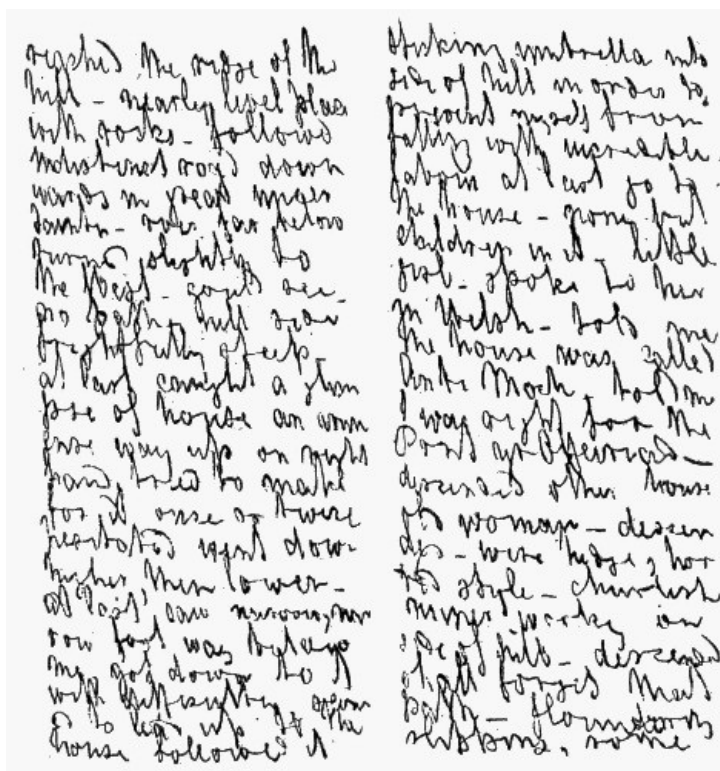 reached the ridge of the
hill - nearly level place
with rocks - followed
indistinct road down
wards in great uncer
tainty - saw far below
turned slightly to
the West - could see
no path, hill side
frightfully steep -
at last caught a glim
pse of house an imm
ense way up on right
hand tried to make
for it once or twice
hesitated went down
higher then lower -
at last saw narrow, nar
row foot way below
me got down to it
with difficulty,
to led up to the
house followed it
sticking umbrella into
side of hill in order to
prevent myself from
falling with incredible
labour at last go to
the house - none but
children in it - little
girl - spoke to her
in Welsh - told me
the house was called
Moch told me
I was right for the
Pont y
descended other house
old woman - descen
ded - wire hedge, hor
rid style - churlish
miner working on
side of hill - descend
shall I forget that
path - flounderings
slippings, some